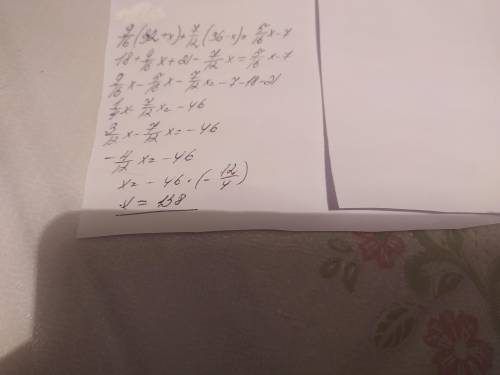 9/16 (32+x)+7/12 (36-x)=5/16 x-7
18+9/16 x+21-7/12 x=5/16 x-7
9/16 x-5/16 x-7/12 x=-7-18-21
1/4 x-7/12 x=-46
3/12 x-7/12 x=-46
-4/12 x=-46
x=-46·(-12/4)
x=138